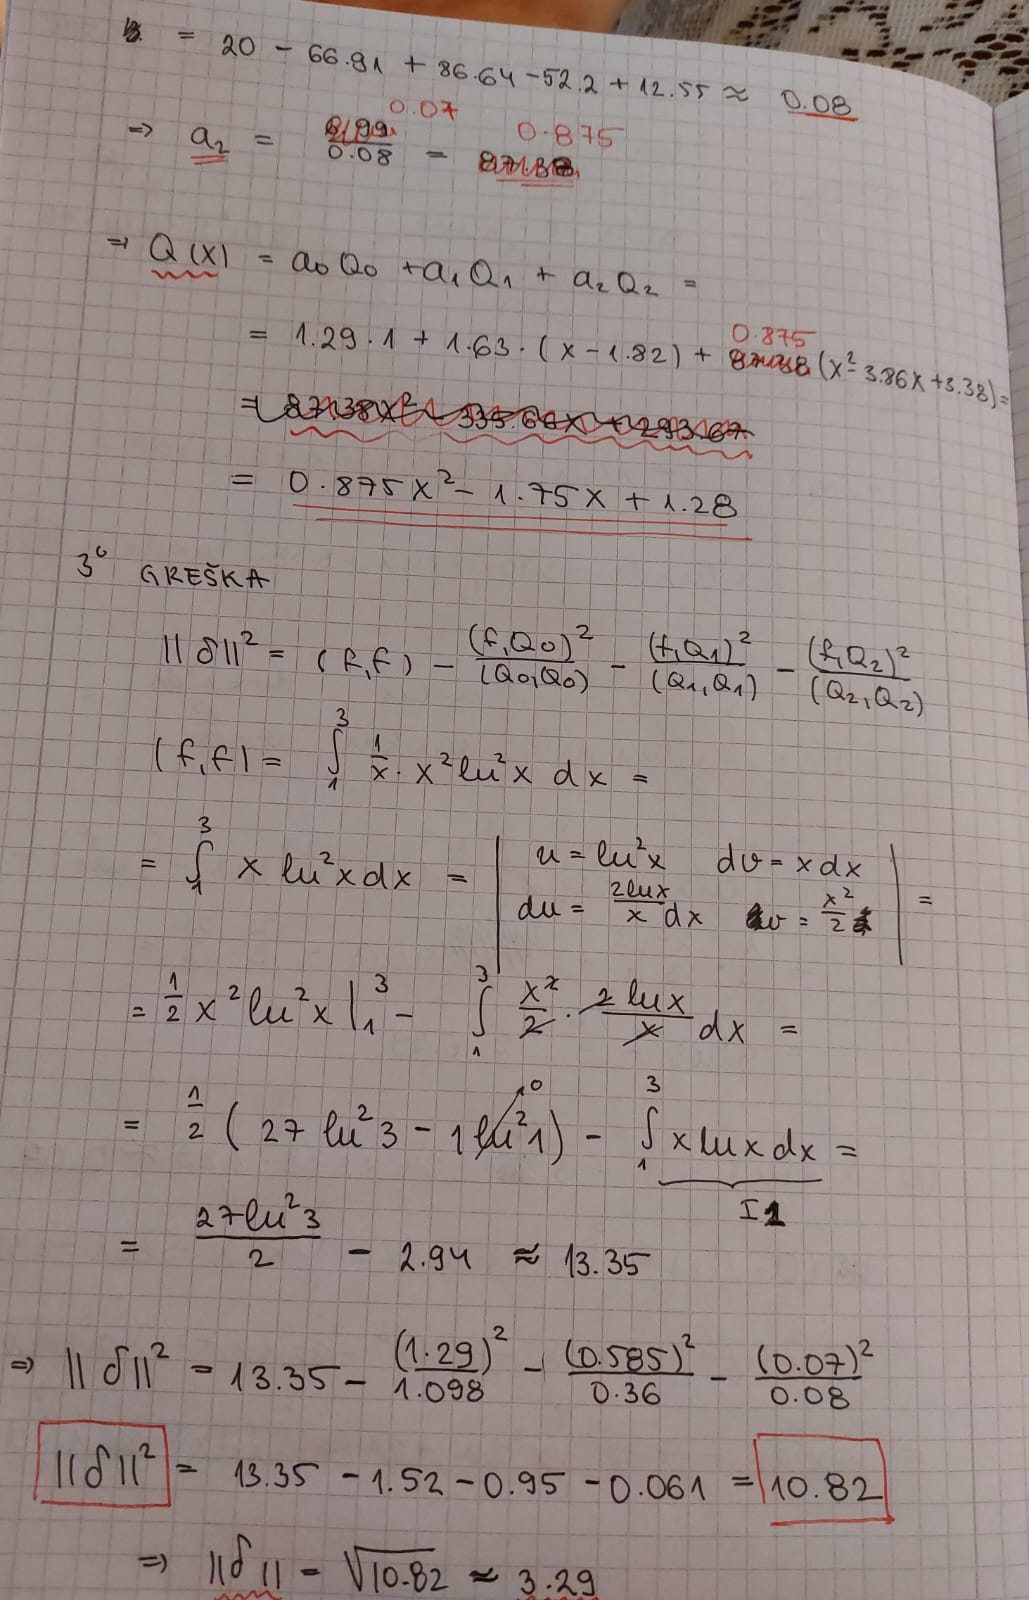 = 20 - 66.91 + 86.64 - 52.2 + 12.55 ≈ 0.08
0.07
⇒ a₂ = ———/0.08 = 0.875
⇒ Q(x) = a₀Q₀ + a₁Q₁ + a₂Q₂ =
0.875
= 1.29·1 + 1.63·(x-1.82) + 87.38 (x²-3.86x+3.38) =
= 87.38x² - 335.66x + 293.67
= 0.875x² - 1.75x + 1.28
3° GREŠKA
||δ||² = (f,f) - (f,Q₀)²/(Q₀,Q₀) - (f,Q₁)²/(Q₁,Q₁) - (f,Q₂)²/(Q₂,Q₂)
(f,f) = ∫₁³ 1/x · x²ln²x dx =
= ∫₁³ x ln²x dx = | u = ln²x dv = x dx
du = 2lnx/x dx v = x²/2 | =
= 1/2 x² ln²x |₁³ - ∫₁³ x²/2 · 2lnx/x dx =
= 1/2 (27 ln²3 - 1 ln²1) - ∫₁³ x lnx dx =
0
I1
= 27ln²3/2 - 2.94 ≈ 13.35
⇒ ||δ||² = 13.35 - (1.29)²/1.098 - (0.585)²/0.36 - (0.07)²/0.08
||δ||² = 13.35 - 1.52 - 0.95 - 0.061 = 10.82
⇒ ||δ|| = √10.82 ≈ 3.29